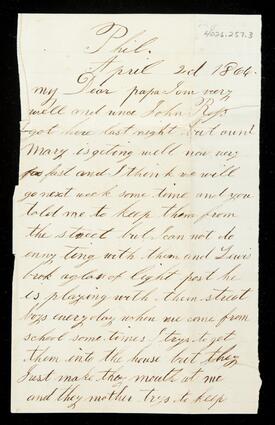 4026.257.3
Phil.
April 2d 1864.
my Dear papa I am very
well and unce John Ross
got here last night but aunt
Mary is geting well now very
fast and I think we will
go next week some time and you
told me to keep them from
the street but I can not do
enny ting with them and Lewis
brok a glass of light post he
is playing with them street
boys every day when we come from
school some times I trys to get
them into the house but they
Just make they mouth at me
and they mother trys to keep